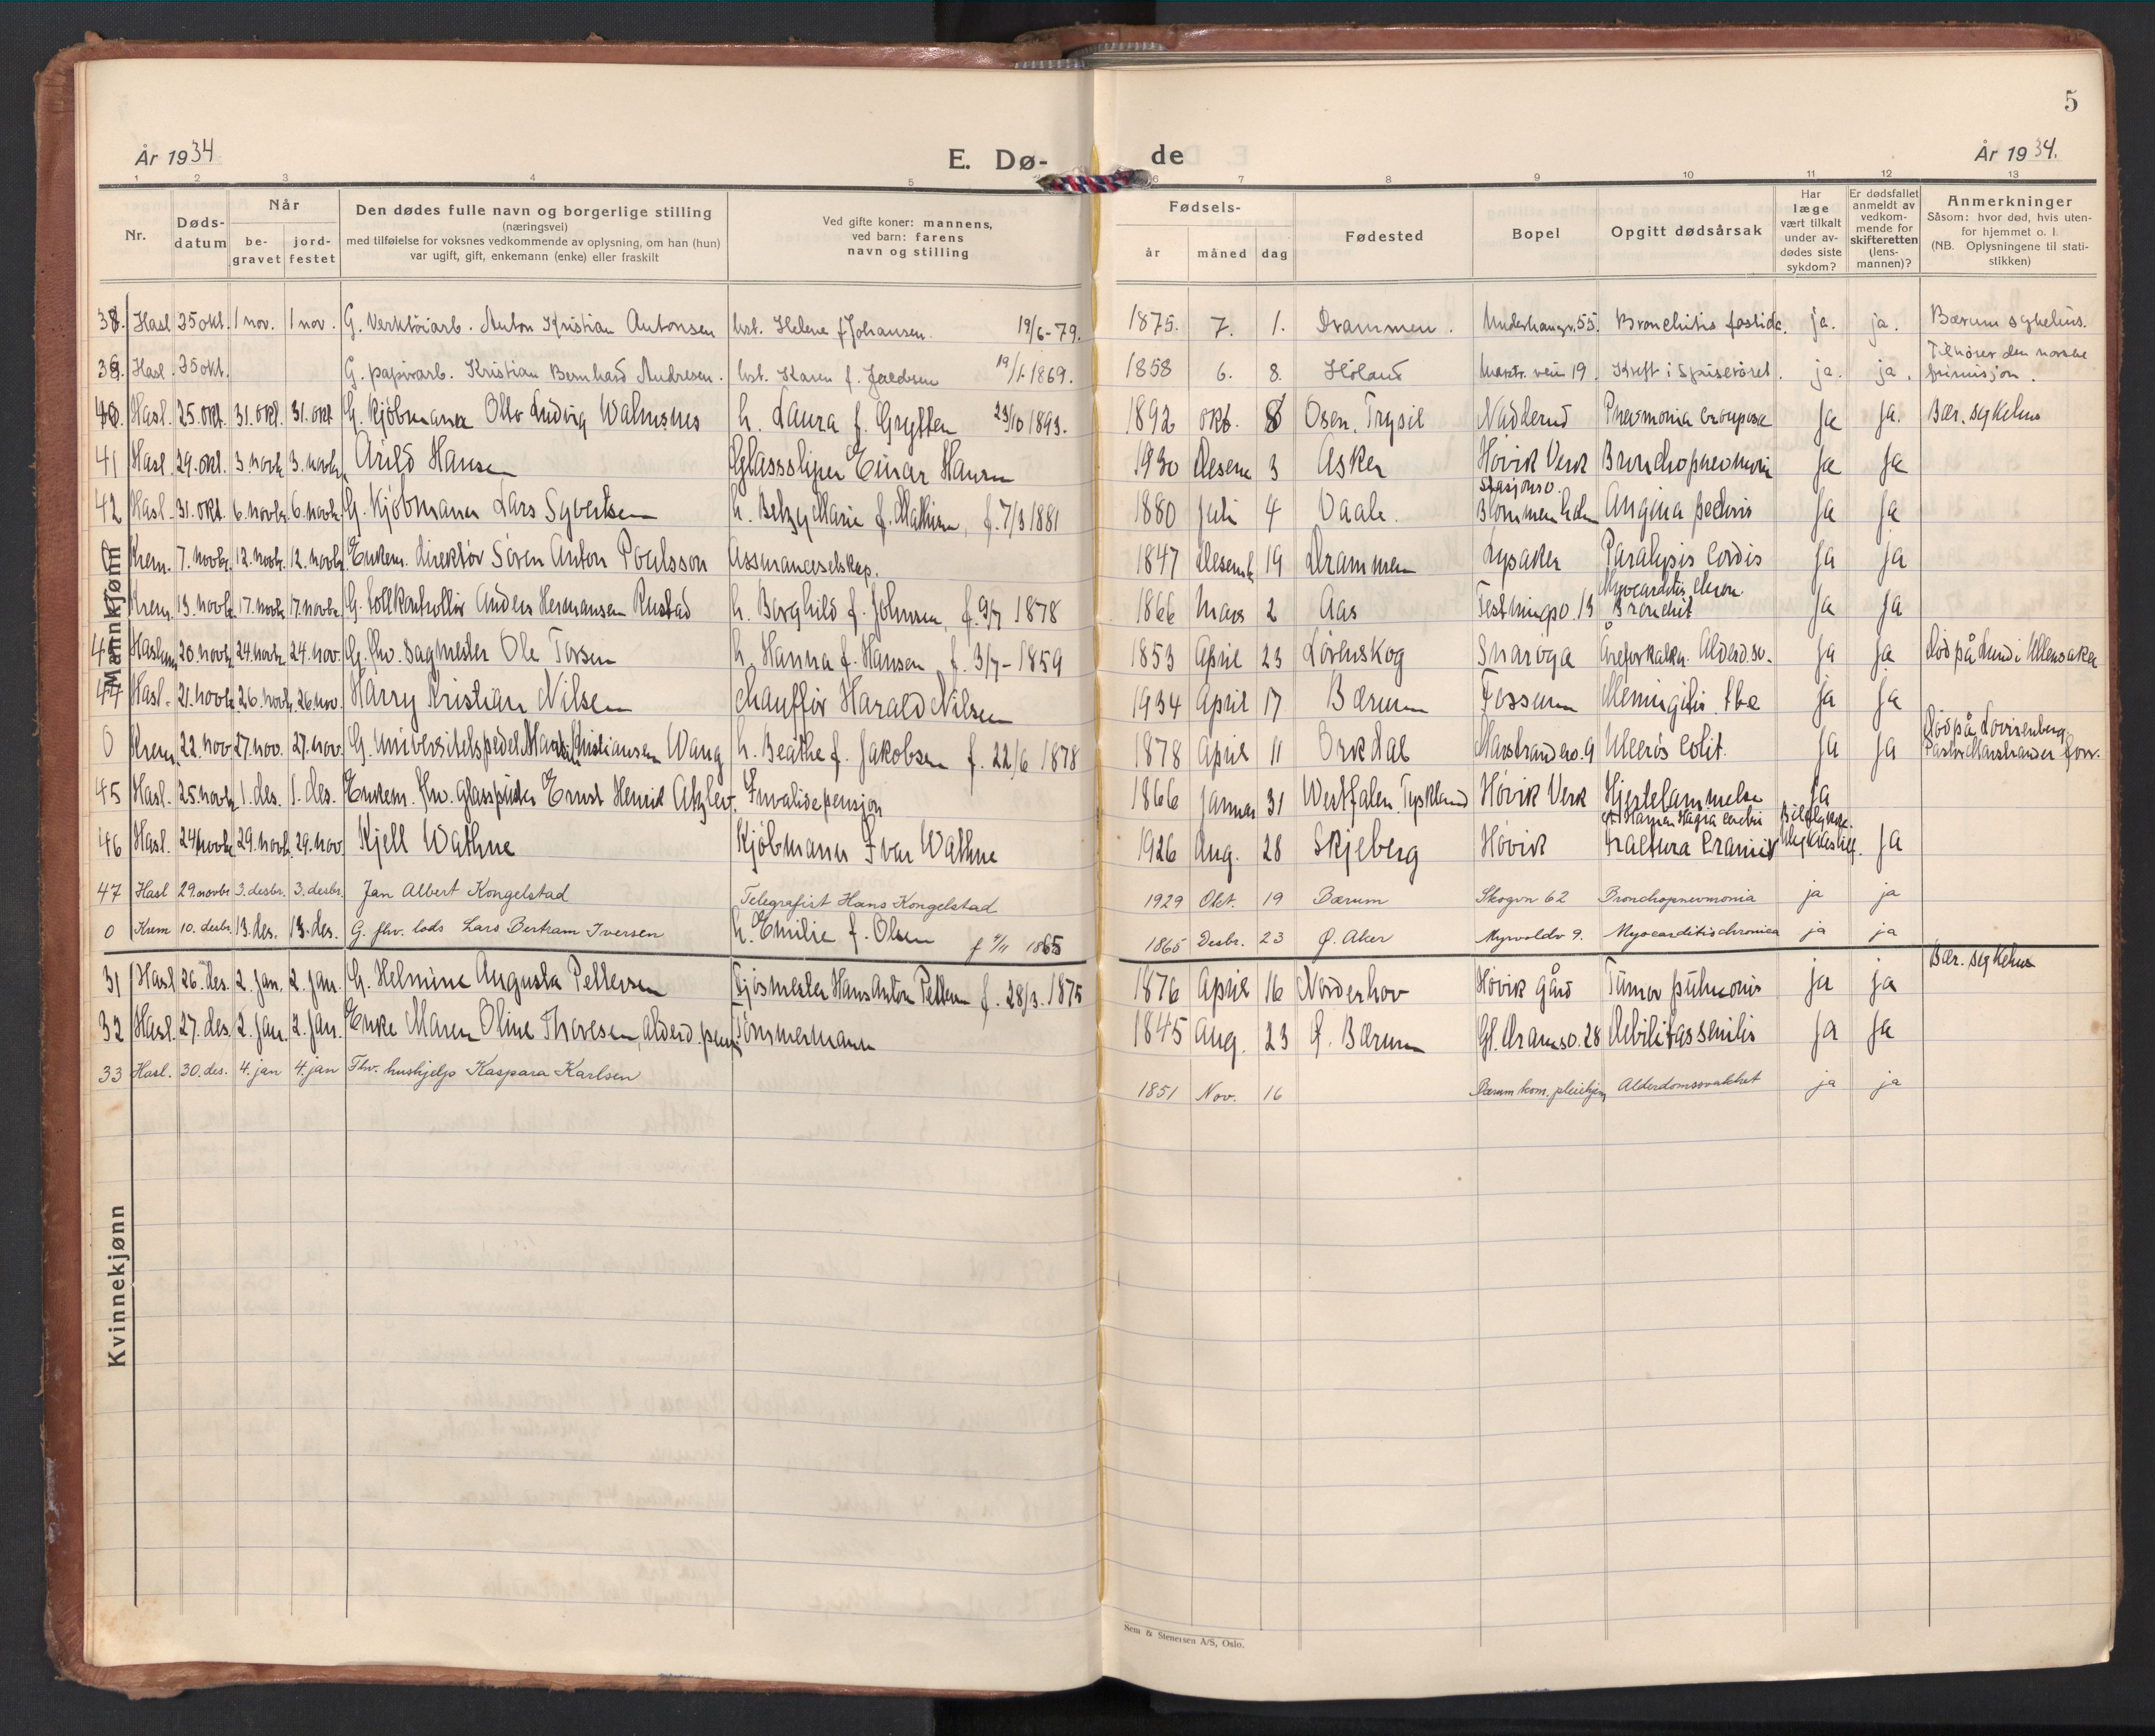 5
År 1934
E. Dø-
de
År 1934.
1 2 3 4 5 6 7 8 9 10 11 12 13
Nr.
Døds-
datum
Når
be-
gravet
jord-
festet
Den dødes fulle navn og borgerlige stilling
(næringsvei)
med tilføielse for voksnes vedkommende av oplysning, om han (hun)
var ugift, gift, enkemann (enke) eller fraskilt
Ved gifte koner: mannens,
ved barn: farens
navn og stilling
Fødsels-
år måned dag
Fødested
Bopel
Opgitt dødsårsak
Har
læge
vært tilkalt
under av-
dødes siste
sykdom?
Er dødsfallet
anmeldt av
vedkom-
mende for
skifteretten
(lens-
mannen)?
Anmerkninger
Såsom: hvor død, hvis uten-
for hjemmet o. l.
(NB. Oplysningene til stati-
stikken)
Mannkjønn
38. Hasl 25 okt. 1 nov. 1 nov. G. Verktöiarb. Anton Kristian Antonsen hst. Helene f Johansen. 19/6-79. 1875. 7. 1. Drammen. 55. Bronchitis fostida. ja. ja. Bærum sykehus.
39. Hasl. 25 okt. G. papirarb. Kristian Bernhard Andresen. hst. Karen f. 19/1-1869. 1858 6. 8. Höland vein 19. Kreft i Spiseröret. ja. ja. Tilhörer den norske
40. Hasl. 25. okt. 31. okt. 31. okt G. Kjöbmann Otto Ludvig Walmsnes h. Laura f. Grytten 23/10 1893. 1892 okt. 8 Osen, Trysil Nadderud Pneumonia crouposa Ja Ja. Bær. sykehus
41 Hasl. 29. okt. 3. novb. 3. novb. Arild Hansen Glassliper Einar Hansen 1930 Desem 3 Asker Hövik Verk Bronchopneumoni Ja Ja
42 Hasl. 31. okt. 6. novb. 6. novb. G. Kjöbmann Lars Syvertsen h. Betzy Marie f. Mathisen, f. 7/3 1881 1880 Juli 4 Vaale. Stasjonsv. Blommenholm Angina pectoris Ja Ja
0 Krem. 7. novbr. 12. novb. 12. novb. Enkem. direktör Sören Anton Poulsson Assuranceselskap. 1847 Desemb. 19 Drammen Lysaker Paralysis Cordis Ja Ja
Krem. 13. novb. 17. novb. 17. novb. G. tollkontrollör Anders Hermansen Rustad h. Borghild f. Johnsen, f. 9/7 1878 1866 Mars 2 Aas 13 Myocarditis, Chron. Bronchit Ja Ja
Haslum 20. novb. 24. novb. 24. nov. G. fhv. Sagmester Ole Torsen h. Hanna f. Hansen f. 3/7-1859 1853 April 23 Lörenskog Snaröya Åreforkalkn. Alderd.sv. Ja Ja Död på Lund i Ullensaker
Hasl. 21. novb. 26. novb. 26. nov. Harry Kristian Nilsen Chaufför Harald Nilsen 1934 April 17 Bærum Fossum Meningitis tbc Ja Ja
0 Krem. 22. nov. 27. nov. 27. nov. G. Universitetspedel Kristiansen Wang h. Beathe f. Jakobsen f. 22/6 1878 1878 April 11 Orkdal Marstranderv. 9 Ulcerös Colit. Ja Ja Död på Lovisenberg. Pastor Marstrander forr.
45 Hasl. 25. novb. 1. des. 1. des. Enkem. fhv. Glasspuster Ernst Henrik Invalidepensjon 1866 Januar 31 Westfalen, Tyskland Hövik Verk Hjertelammelse Ja
46 Hasl. 24 novb. 29. novb. 29. nov. Kjell Wathne Kjöbmann Ivar Wathne 1926 Aug. 28 Skjeberg Hövik Fractura Cranii Ja
47 Hasl 29. novbr 3. desbr. 3. desbr. Jan Albert Kongelstad Telegrafist Hans Kongelstad 1929 Okt. 19 Bærum Skogvn 62 Bronchopnevmonia ja ja
0 Krem 10. desbr. 13. des. 13. des. G. fhv. lods Lars Bertram Iversen h. Emilie f. Olsen f 4/11 1865 1865 Desbr. 23 Ø. Aker Myrvoldv 9. Myocarditis chronica ja ja
Kvinnekjønn
31 Hasl 26. des. 2. jan. 2. jan. G. Helmine Augusta Pettersen Fjösmester Hans Anton Pettersen f. 28/3. 1875 1876 April 16 Norderhov Hövik gård Tumor pulmonis ja ja Bær. sykehus
32 Hasl. 27. des. 2. jan. 2. jan. Enke Maren Oline Thoresen, alderd. pens. Tömmermann 1845 Aug. 23 Ø. Bærum Gl. Dramsv. 28 Debilitas senilis Ja Ja
33 Hasl. 30. des. 4. jan 4. jan Fhv. hushjelp Kaspara Karlsen 1851 Nov. 16 Bærum kom. pleiehjem Alderdomssvakhet ja ja
Sem & Stenersen A/S, Oslo.